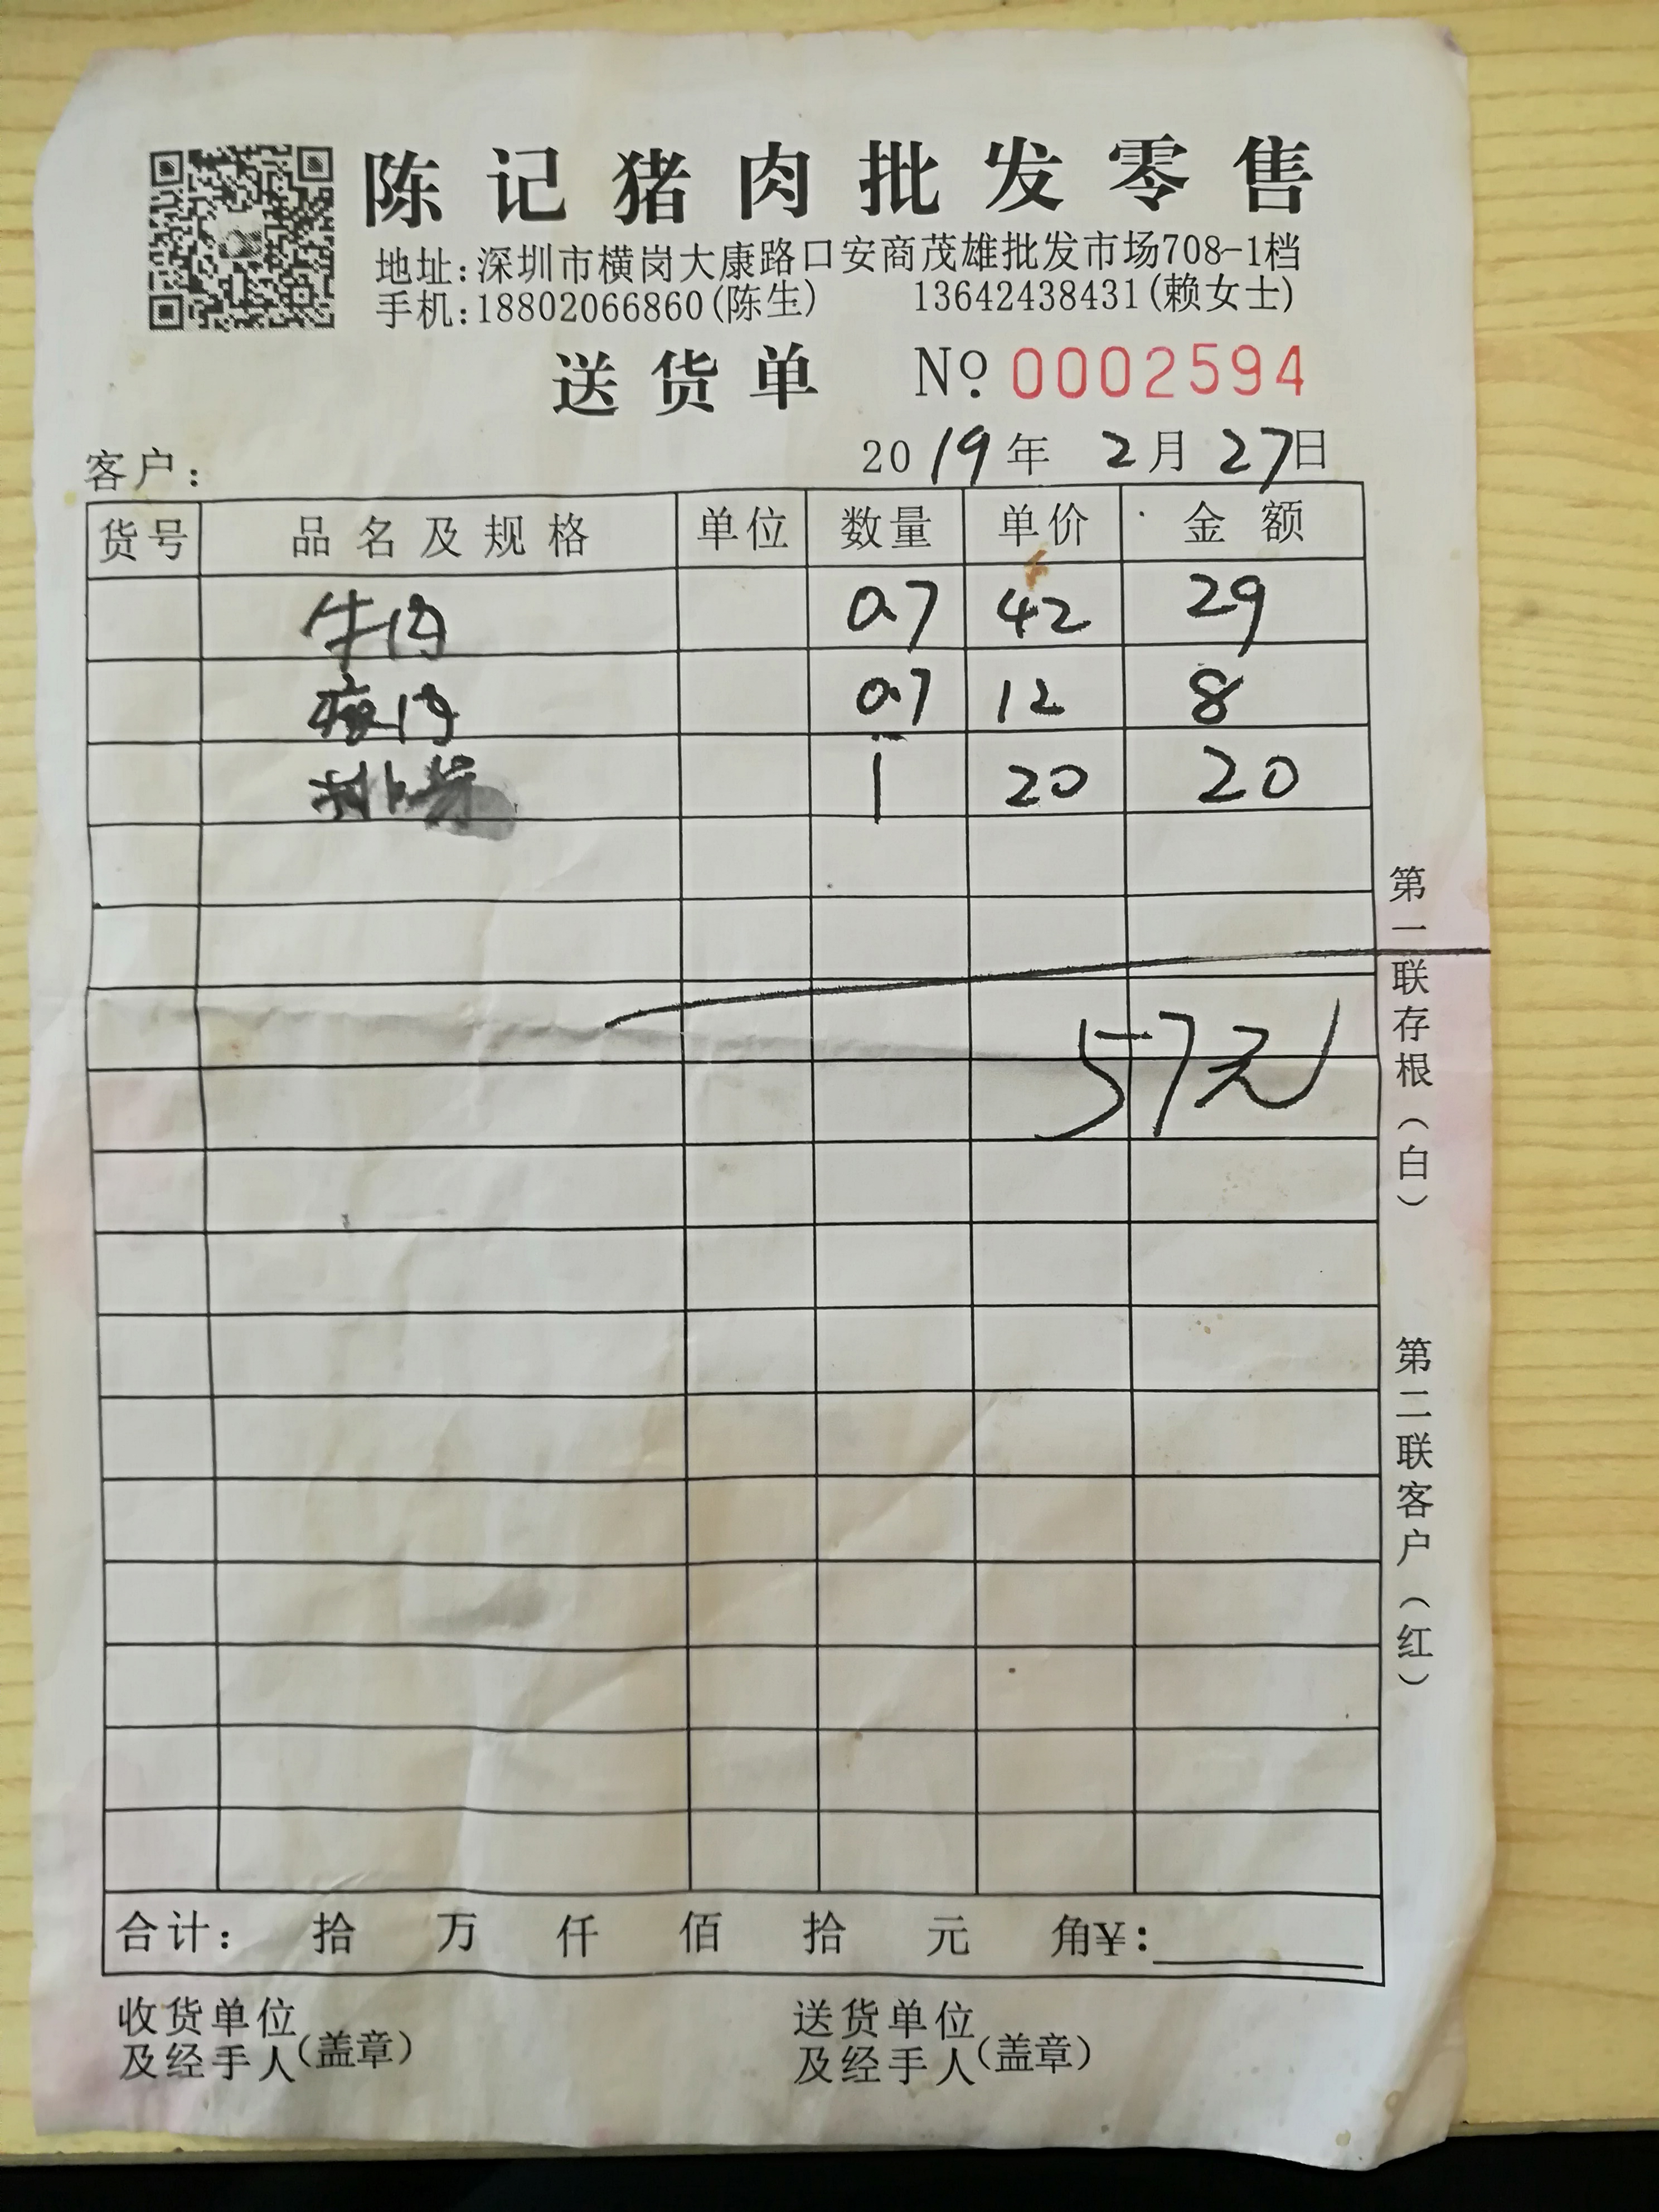 陈记猪肉批发零售
地址:深圳市横岗大康路口安商茂雄批发市场708-1档
手机:18802066860(陈生) 13642438431(赖女士)
送货单 №. 0002594
客户: 2019年 2月 27日
货号 品名及规格 单位 数量 单价 金额
牛肉 0.7 42 29
瘦肉 0.7 12 8
排骨 1 20 20
57元
合计: 拾 万 仟 佰 拾 元 角¥:
收货单位及经手人(盖章) 送货单位及经手人(盖章)
第一联存根(白)
第二联客户(红)